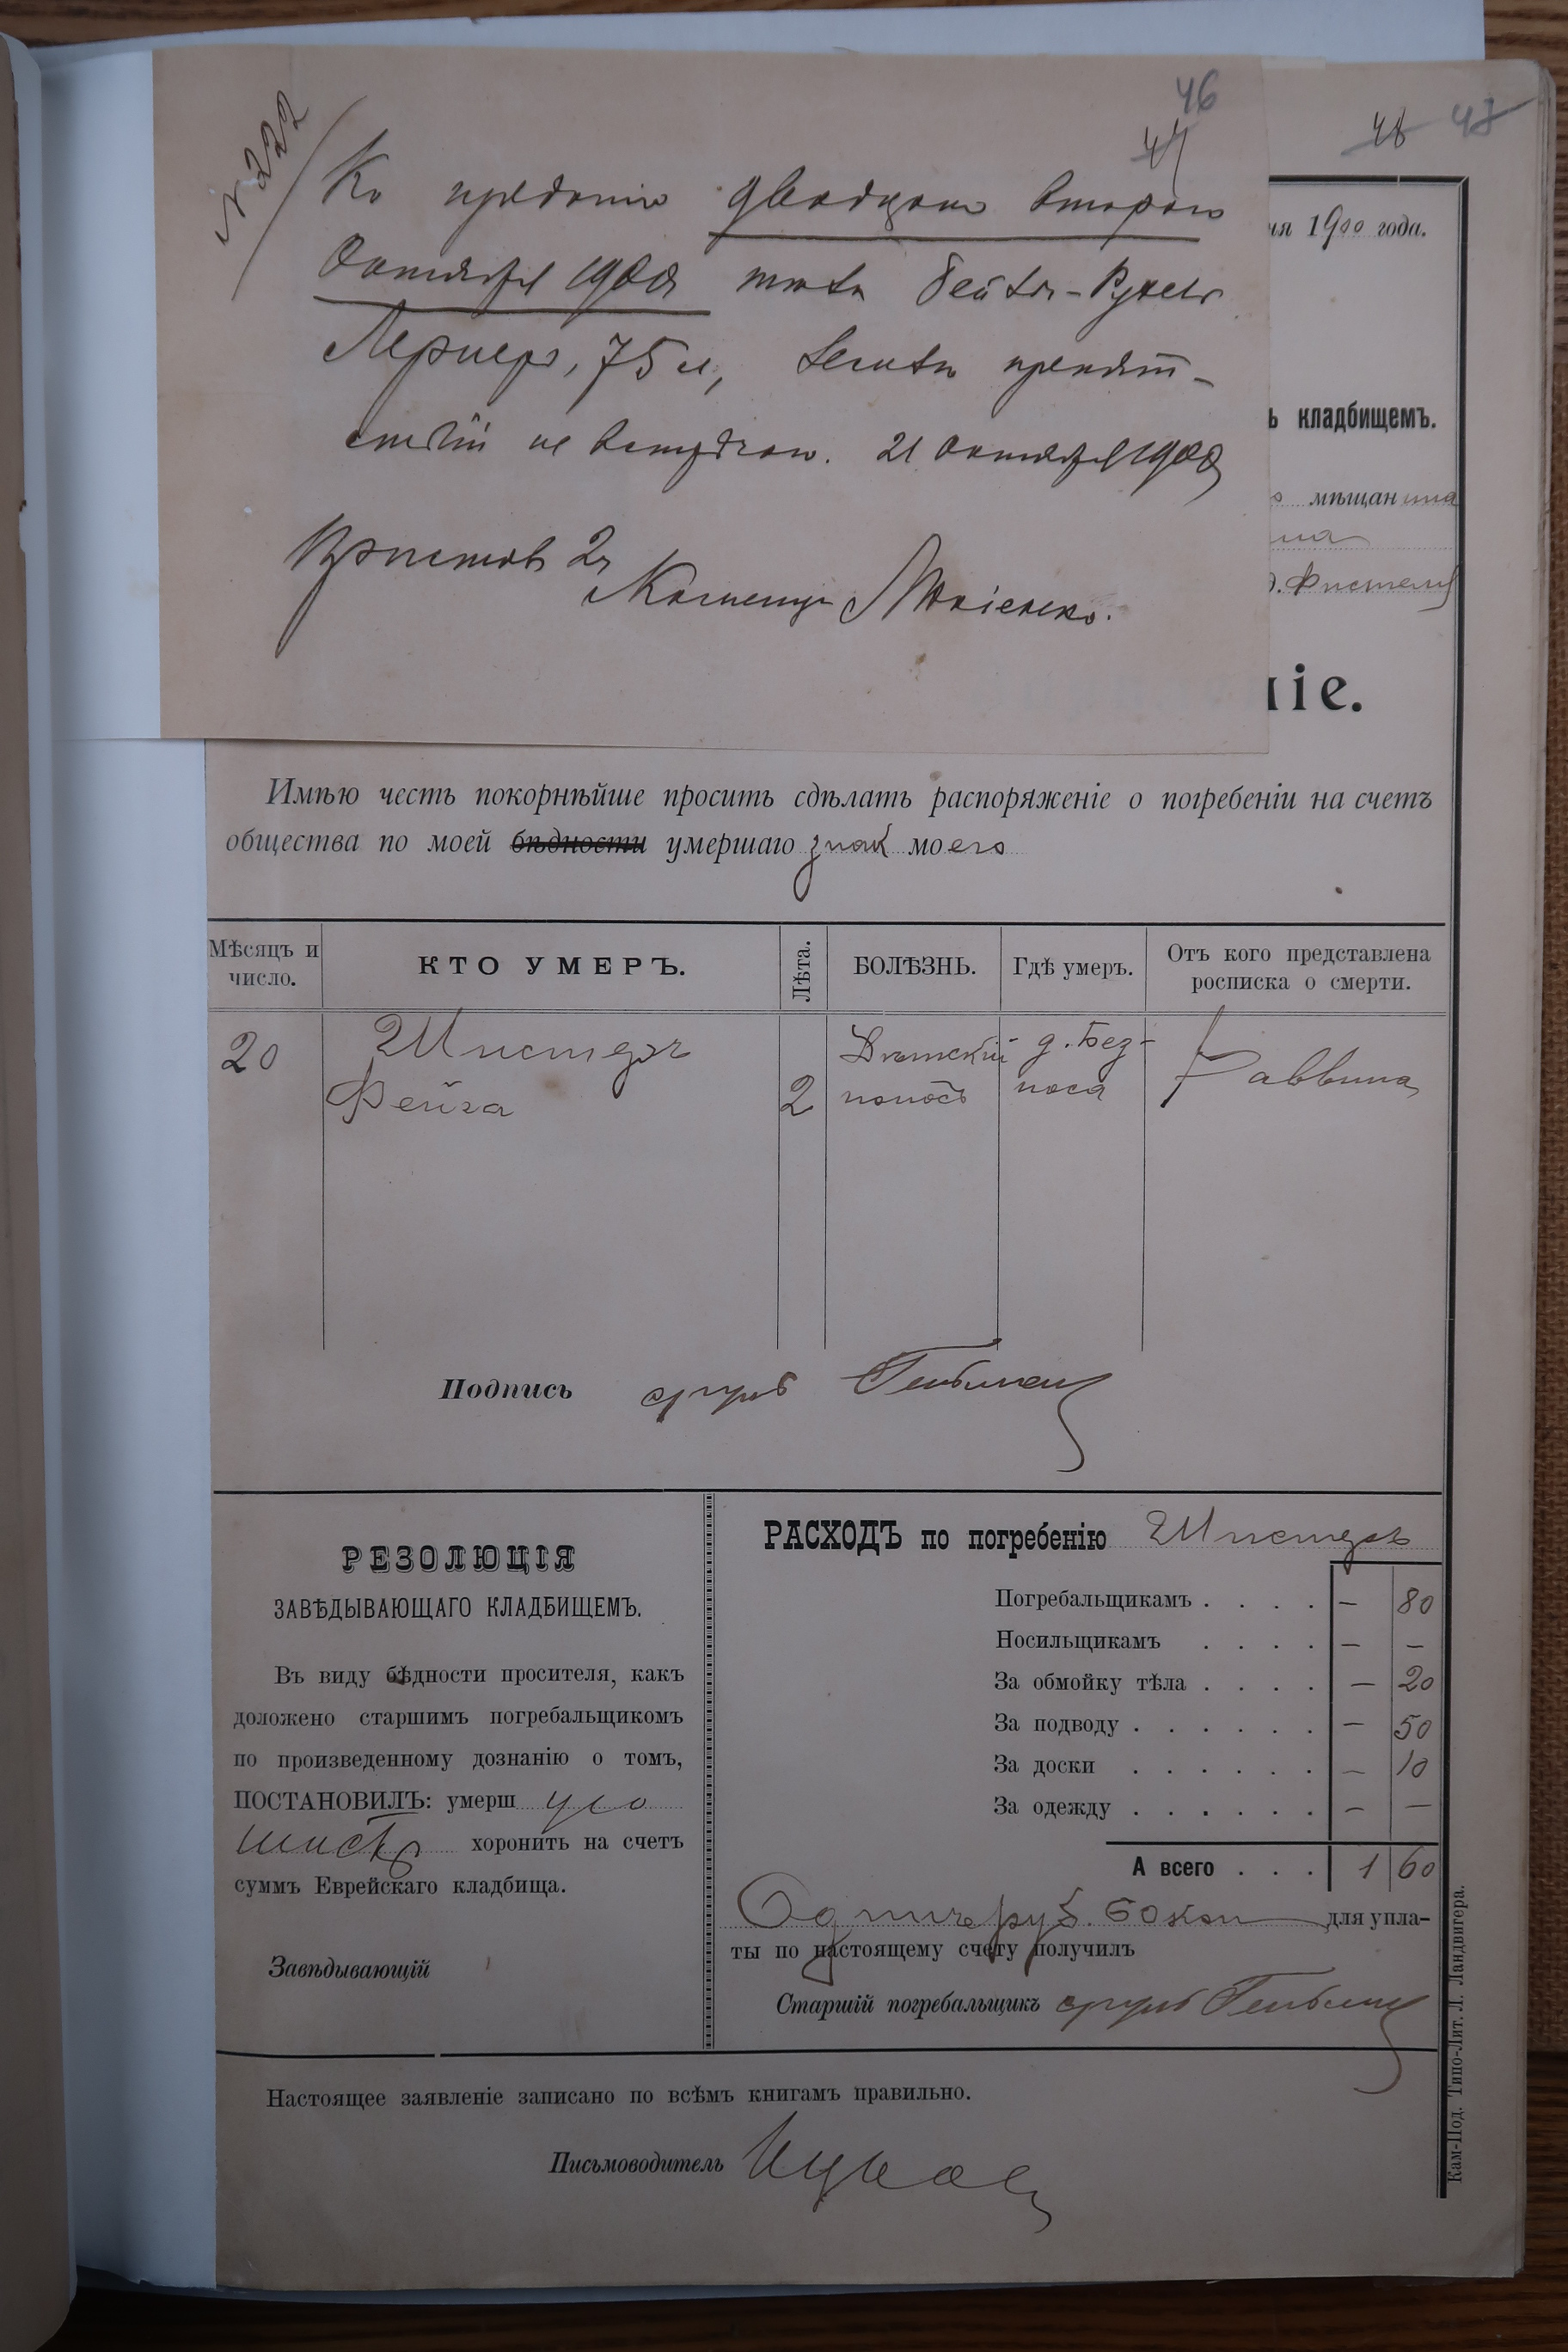 46
47
№ 222
Къ преданію двадцать второго
Октября 1900 тѣла Бейлы-Рухли
Лернеръ, 75 л, земли препят-
ствій не встрѣчаю. 21 Октября 1900
Приставъ 2 ч
48 47
ня 1900 года.
ъ кладбищемъ.
мѣщанина
на
ніе.
Имѣю честь покорнѣйше просить сдѣлать распоряженіе о погребеніи на счетъ
общества по моей бѣдности умершаго знак моего
Мѣсяцъ и число.
КТО УМЕРЪ.
Лѣта.
БОЛѢЗНЬ.
Гдѣ умеръ.
Отъ кого представлена росписка о смерти.
20
Шистеръ
Фейга
2
Дѣтскій
поносъ
д. Без-
носа
Раввина
Подпись
РЕЗОЛЮЦІЯ
ЗАВѢДЫВАЮЩАГО КЛАДБИЩЕМЪ.
Въ виду бѣдности просителя, какъ
доложено старшимъ погребальщикомъ
по произведенному дознанію о томъ,
ПОСТАНОВИЛЪ: умерш
хоронить на счетъ
суммъ Еврейскаго кладбища.
Завѣдывающій
РАСХОДЪ по погребенію Шистеръ
Погребальщикамъ . . . . — 80
Носильщикамъ . . . . — —
За обмойку тѣла . . . . — 20
За подводу . . . . . . — 50
За доски . . . . . . — 10
За одежду . . . . . . — —
А всего . . . 1 60
Одинъ руб. 60 коп для упла-
ты по настоящему счету получилъ
Старшій погребальщикъ
Настоящее заявленіе записано по всѣмъ книгамъ правильно.
Письмоводитель
Кам-Под. Типо-Лит. Л. Ландвигера.